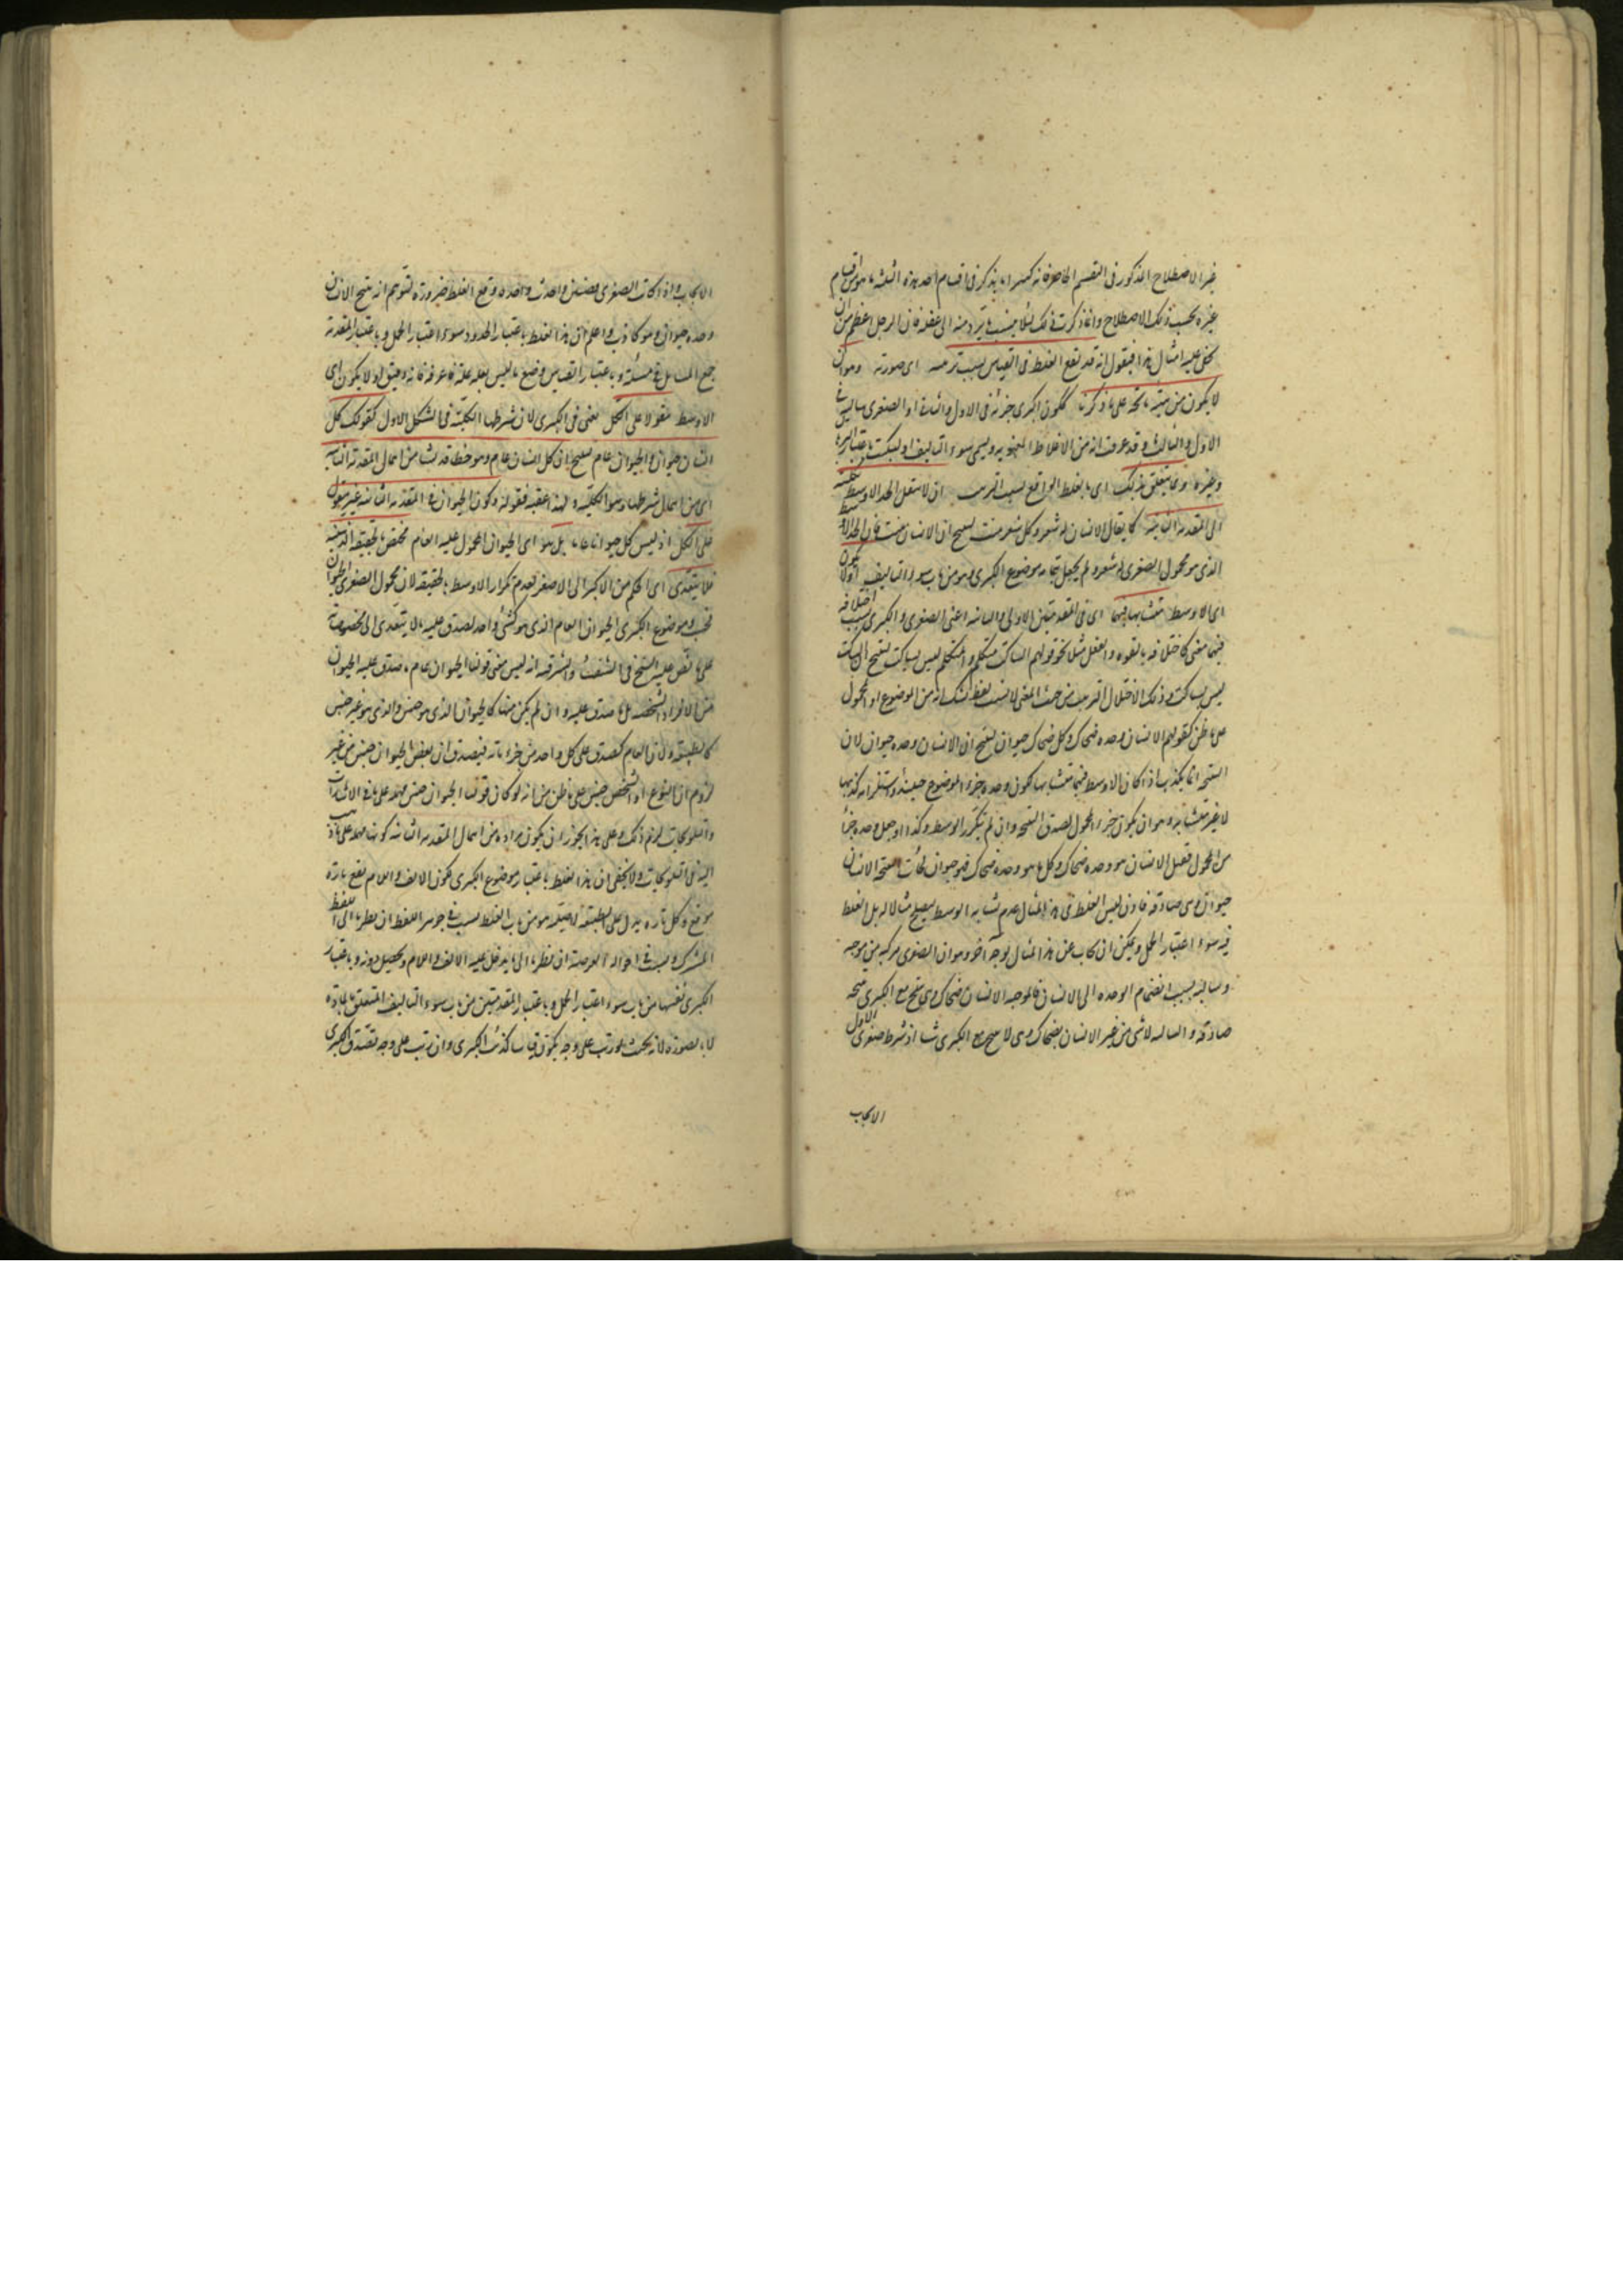 غير الاصطلاح المذكور في التقسيم الحاصر فانه كثيرا ما يذكر في اقسام احد هذه الثلثة ما هو من اقسام
غيره بحسب ذلك الاصطلاح وانما ذكرت ذلك لئلا ينسب ما يرد منه الى غفلة فان الرجل اعظم من ان
يخفى عليه امثال هذا فيقول انه قد يقع الغلط في القياس بسبب ترتيبه اى صورته وهو ان
لا يكون من هيئة ناتجة على ما ذكرنا ككون الكبرى جزئية في الاول والثاني او الصغرى سالبة في
الاول والثالث وقد عرفت انه من الاغلاط المعنوية ويسمى سوء التاليف او التبكيت باعتبار البرهان
وغيره ومما يتعلق بذلك اى بالغلط الواقع بسبب الترتيب ان لا ينتقل الحد الاوسط بكليته
الى المقدمة الثانية كما يقال الانسان له شعر وكل شعر ينبت لينتج ان الانسان ينبت فان الحد الاوسط
الذى هو محمول الصغرى له شعر ولم يجعل بتمامه موضوع الكبرى وهو من باب سوء التاليف او لا يكون
اى الاوسط متشابها فيهما اى في المقدمتين الاولى والثانية اعنى الصغرى والكبرى بسبب اختلافه
فيهما معنى كاختلافه بالقوة والفعل مثل نحو قولهم الساكت متكلم والمتكلم ليس بساكت لينتج الساكت
ليس بساكت وذلك الاختلال الترتيب من حيث المعنى لا بسبب لفظ الشك انه من الموضوع او المحمول
على ما ظن كقولهم الانسان وحده ضحاك وكل ضحاك حيوان لينتج ان الانسان وحده حيوان لان
النتيجة انما يكذب اذا كان الاوسط فيهما متشابها ككون وحده جزء الموضوع حينئذ واستلزامه كذبها
لا غير متشابه وهو ان يكون جزء المحمول لصدق النتيجة وان لم يتكرر الوسط وكذا اذا جعل وحده جزأ
من المحمول فقيل الانسان هو وحده ضحاك وكل ما هو وحده ضحاك فهو حيوان كانت النتيجة الانسان
حيوان وهى صادقة فاذن ليس الغلط في هذا المثال عدم تشابه الوسط ليصلح مثالا له بل الغلط
فيه سوء اعتبار الحمل ويمكن ان يجاب عن هذا المثال بوجه آخر وهو ان الصغرى مركبة من موجبة
وسالبة بسبب انضمام الوحدة الى الانسان فالموجبة الانسان ضحاك وهى ينتج مع الكبرى نتيجة
صادقة والسالبة لا شئ من غير الانسان بضحاك وهى لا ينتج مع الكبرى شيئا اذ شرط صغرى الاول
الايجاب
الايجاب واذا كانت الصغرى قضيتين واخذت واحدة وقع الغلط ضرورة لتوهم انه ينتج الانسان
وحده حيوان وهو كاذب واعلم ان هذا الغلط باعتبار الحدود سوء اعتبار الحمل وباعتبار المقدمة
جمع المسايل في مسئلة وباعتبار القياس وضع ما ليس بعلة علة فاعرفه فانه دقيق او لا يكون اى
الاوسط مقولا على الكل يعنى في الكبرى لان شرطها الكلية في الشكل الاول كقولك كل
انسان حيوان والحيوان عام لينتج ان كل انسان عام وهو خطا قد نشا من اهمال المقدمة الثانية
اى من اهمال شرطها وهو الكلية ولهذا عقبه فقوله وكون الحيوان في المقدمة الثانية غير مقول
على الكل اذ ليس كل حيوان عاما بل هو اى الحيوان المحمول عليه العام مختص بحقيقة الذهنية
فلا يتعدى اى الحكم من الاكبر الى الاصغر لعدم تكرار الاوسط بالحقيقة لان محمول الصغرى الحيوان
فحسب وموضوع الكبرى الحيوان العام الذى هو كشئ واحد لصدق عليه ما لا يتعدى الى مخصوصاته
على ما نص عليه الشيخ في الشفاء والمشرقية انه ليس معنى قولنا الحيوان عام ما صدق عليه الحيوان
من الافراد الشخصية بل ما صدق عليه وان لم يكن منها كالحيوان الذى هو جنس والذى هو غير جنس
كالطبيعة ولان العام يصدق على كل واحد من جزءياته فيصدق ان بعض الحيوان جنس من غير
لزوم ان النوع او الشخص جنس على ما ظن من انه لو كان قولنا الحيوان جنس مهملة على ما في الاشارات
والتلويحات لزم ذلك وعلى هذا يجوز ان يكون مراده من اهمال المقدمة الثانية كونها مهملة على ما ذهب
اليه في التلويحات ولا يخفى ان هذا الغلط باعتبار موضوع الكبرى لكون الالف واللام تقع تارة
موقع وكل تارة يدل على الطبيعة الاصلية هو من باب الغلط بسبب في جوهر اللفظ ان نظرنا الى اللفظ
المشترك وبسبب في احواله العرضية ان نظرنا الى ما يدخل عليه الالف واللام ويحصل دونه وباعتبار
الكبرى نفسها من باب سوء اعتبار الحمل وباعتبار المقدمتين من باب سوء التاليف المتعلق بالمادة
لا بالصورة لانه بحيث لو رتب على وجه يكون قياسا كذبت الكبرى وان رتب على وجه تصدق الكبرى